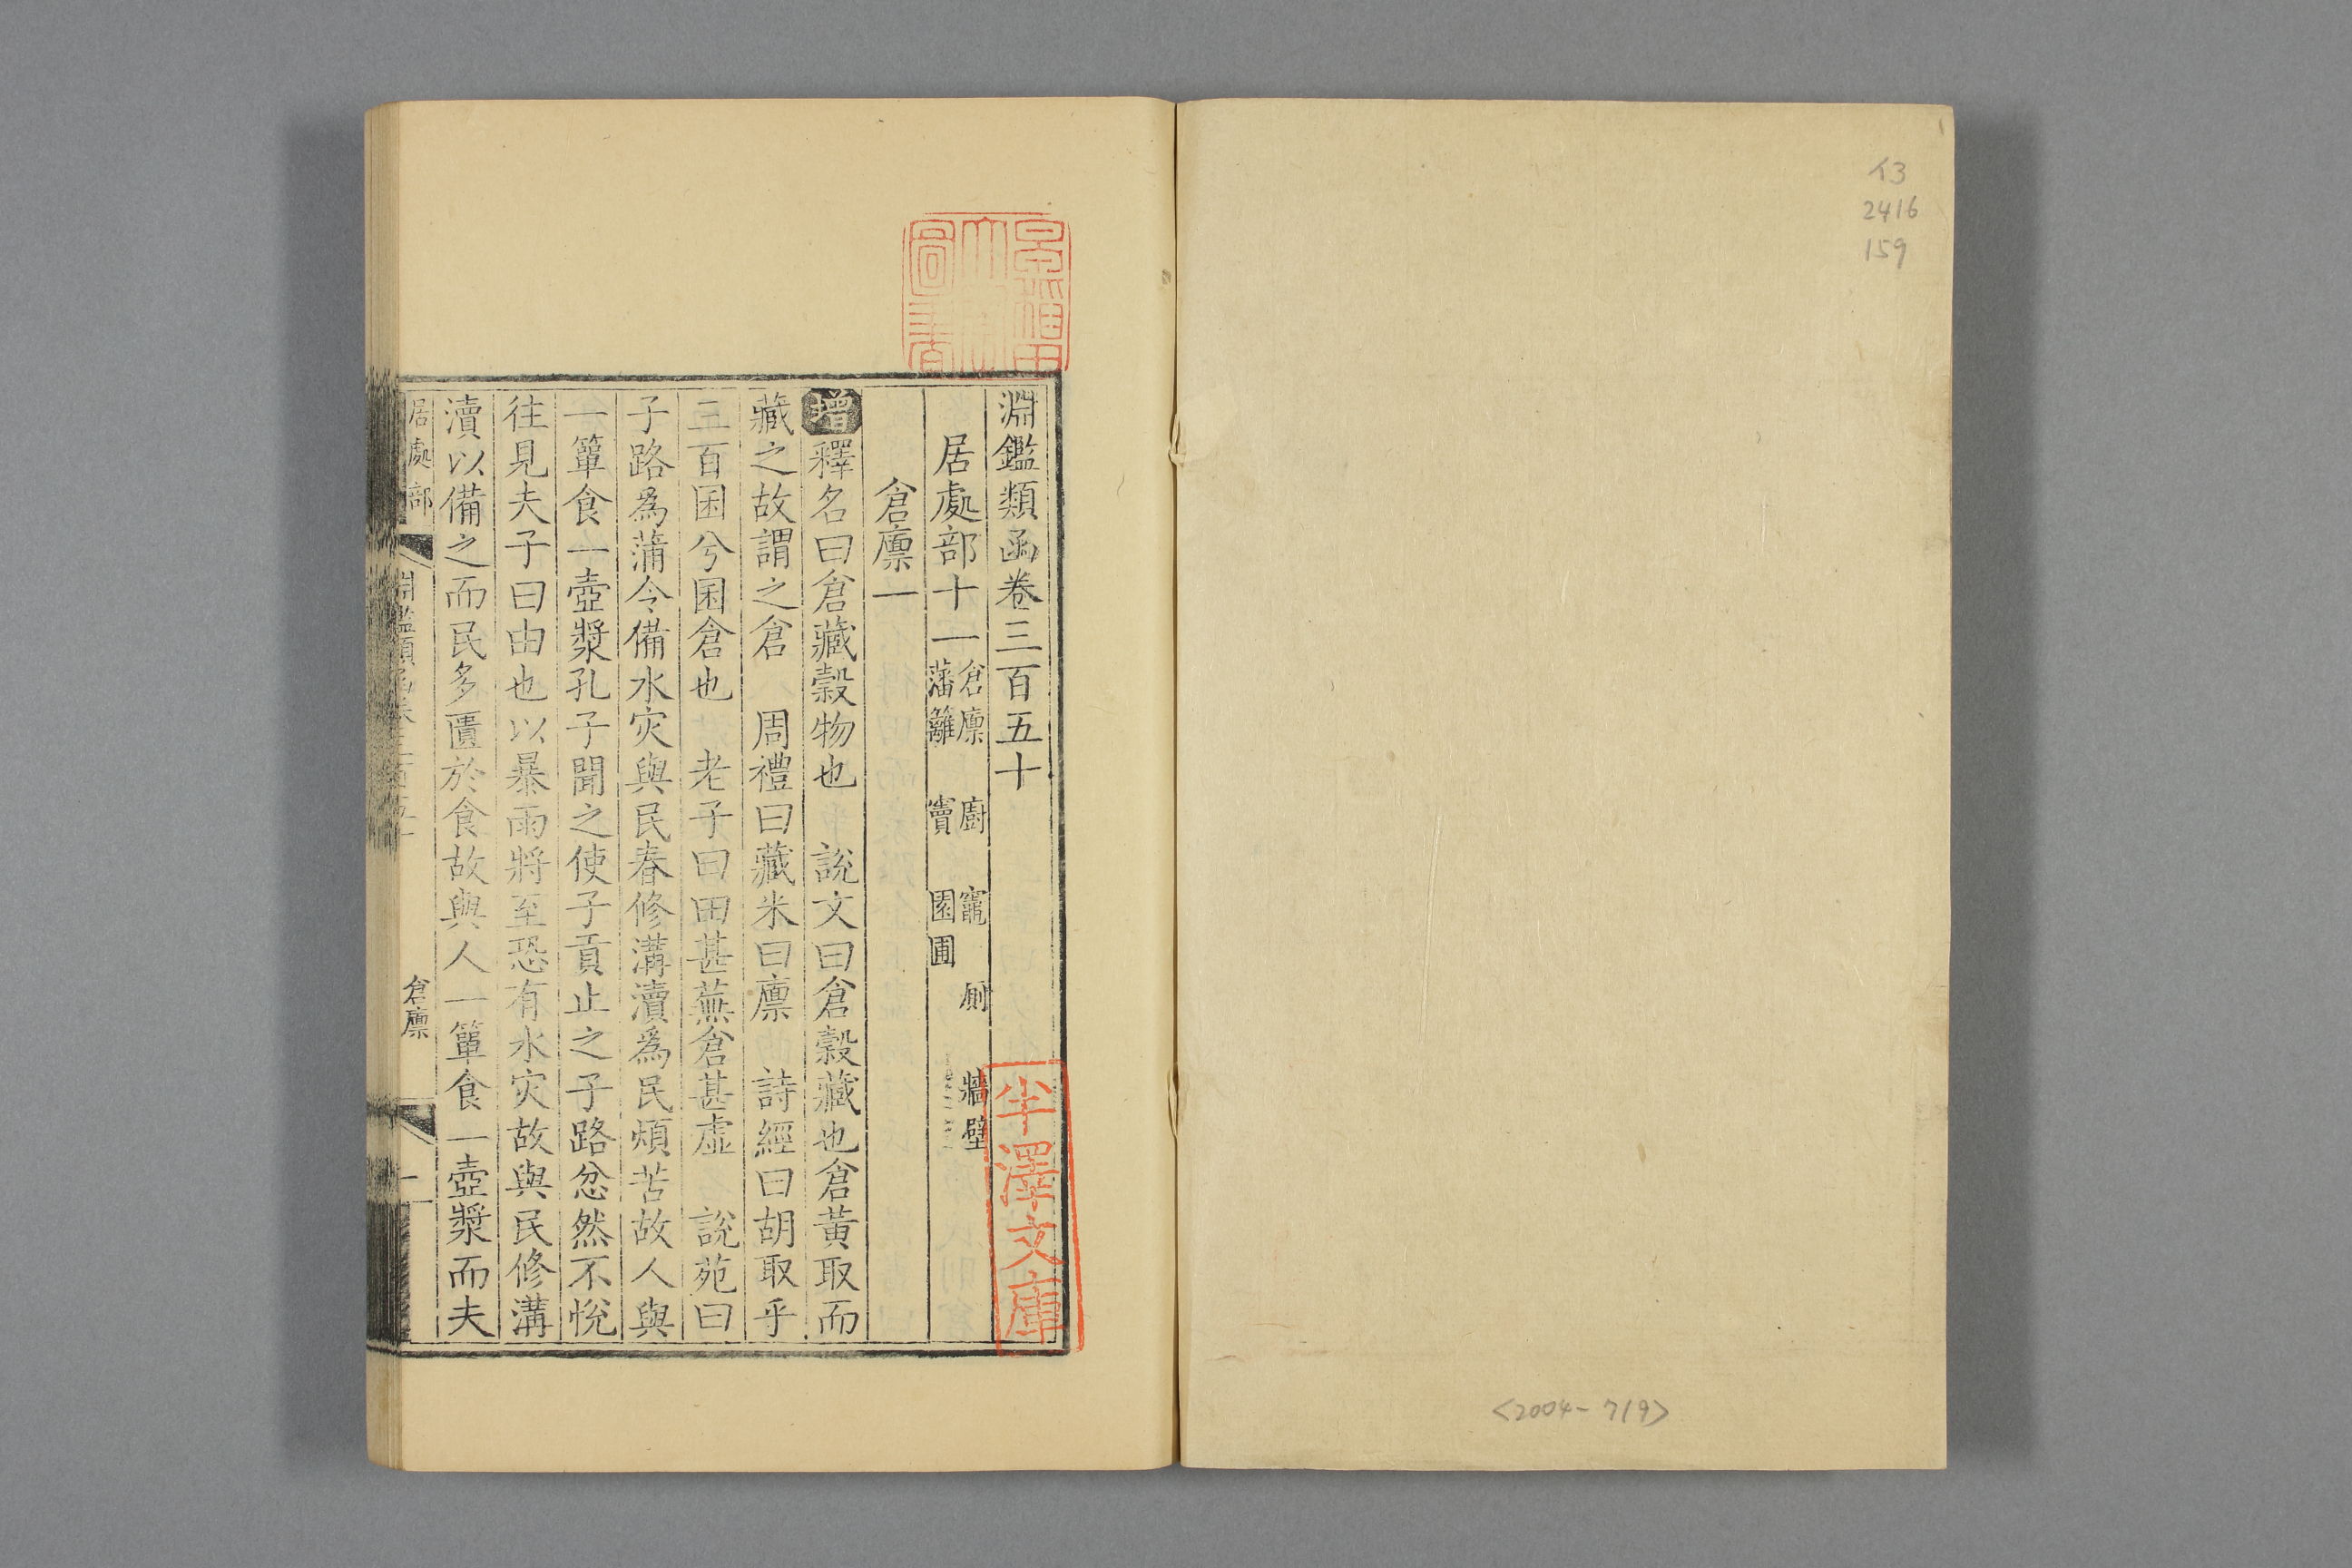 イ3
2416
159
<2004-719>
淵鑑類函卷三百五十
居處部十一 倉廩 廚 竈 厠 牆壁
藩籬 竇 園圃
倉廩一
增釋名曰倉藏穀物也 說文曰倉穀藏也倉黃取而
藏之故謂之倉 周禮曰藏米曰廩 詩經曰胡取乎
三百囷兮囷倉也 老子曰田甚蕪倉甚虛 說苑曰
子路爲蒲令備水灾與民春修溝瀆爲民煩苦故人與
一簞食一壺漿孔子聞之使子貢止之子路忿然不悅
往見夫子曰由也以暴雨將至恐有水灾故與民修溝
瀆以備之而民多匱於食故與人一簞食一壺漿而夫
居處部 淵鑑類函卷三百五十 倉廩 一
早稻田大學圖書
半澤文庫